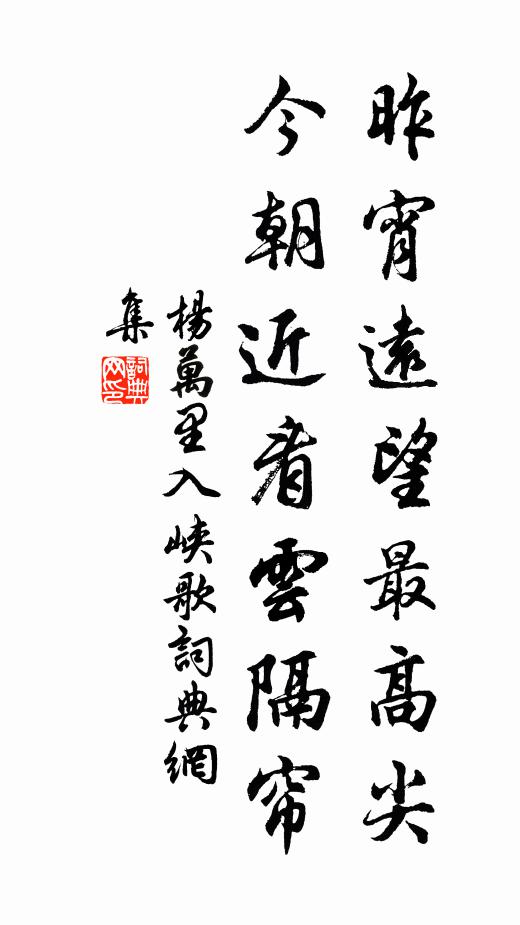 昨宵遠望最高尖
今朝近看雲隔帘
楊萬里入峽歌詞典網
集
詞典网印